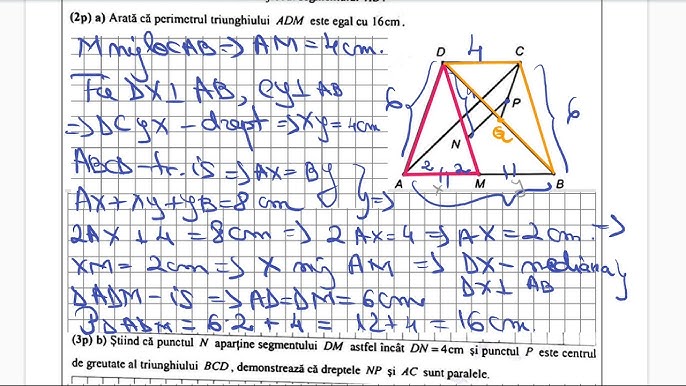 (2p) a) Arată că perimetrul triunghiului ADM este egal cu 16cm.
M mijloc AB => AM = 4cm.
Fie DX⊥AB, CY⊥AB
=> DCYX - drept => XY = 4cm
ABCD - tr. is => AX = BY } y =>
AX + XY + YB = 8 cm
2AX + 4 = 8cm => 2AX = 4 => AX = 2cm. =>
XM = 2cm => X mij AM => DX - mediana y
DX⊥AB
ΔADM - is => AD = DM = 6cm
PΔADM = 6·2 + 4 = 12 + 4 = 16cm.
D 4 C
6 6
P
G
N
2 2
A x M y B
(3p) b) Știind că punctul N aparține segmentului DM astfel încât DN = 4cm și punctul P este centrul
de greutate al triunghiului BCD, demonstrează că dreptele NP și AC sunt paralele.